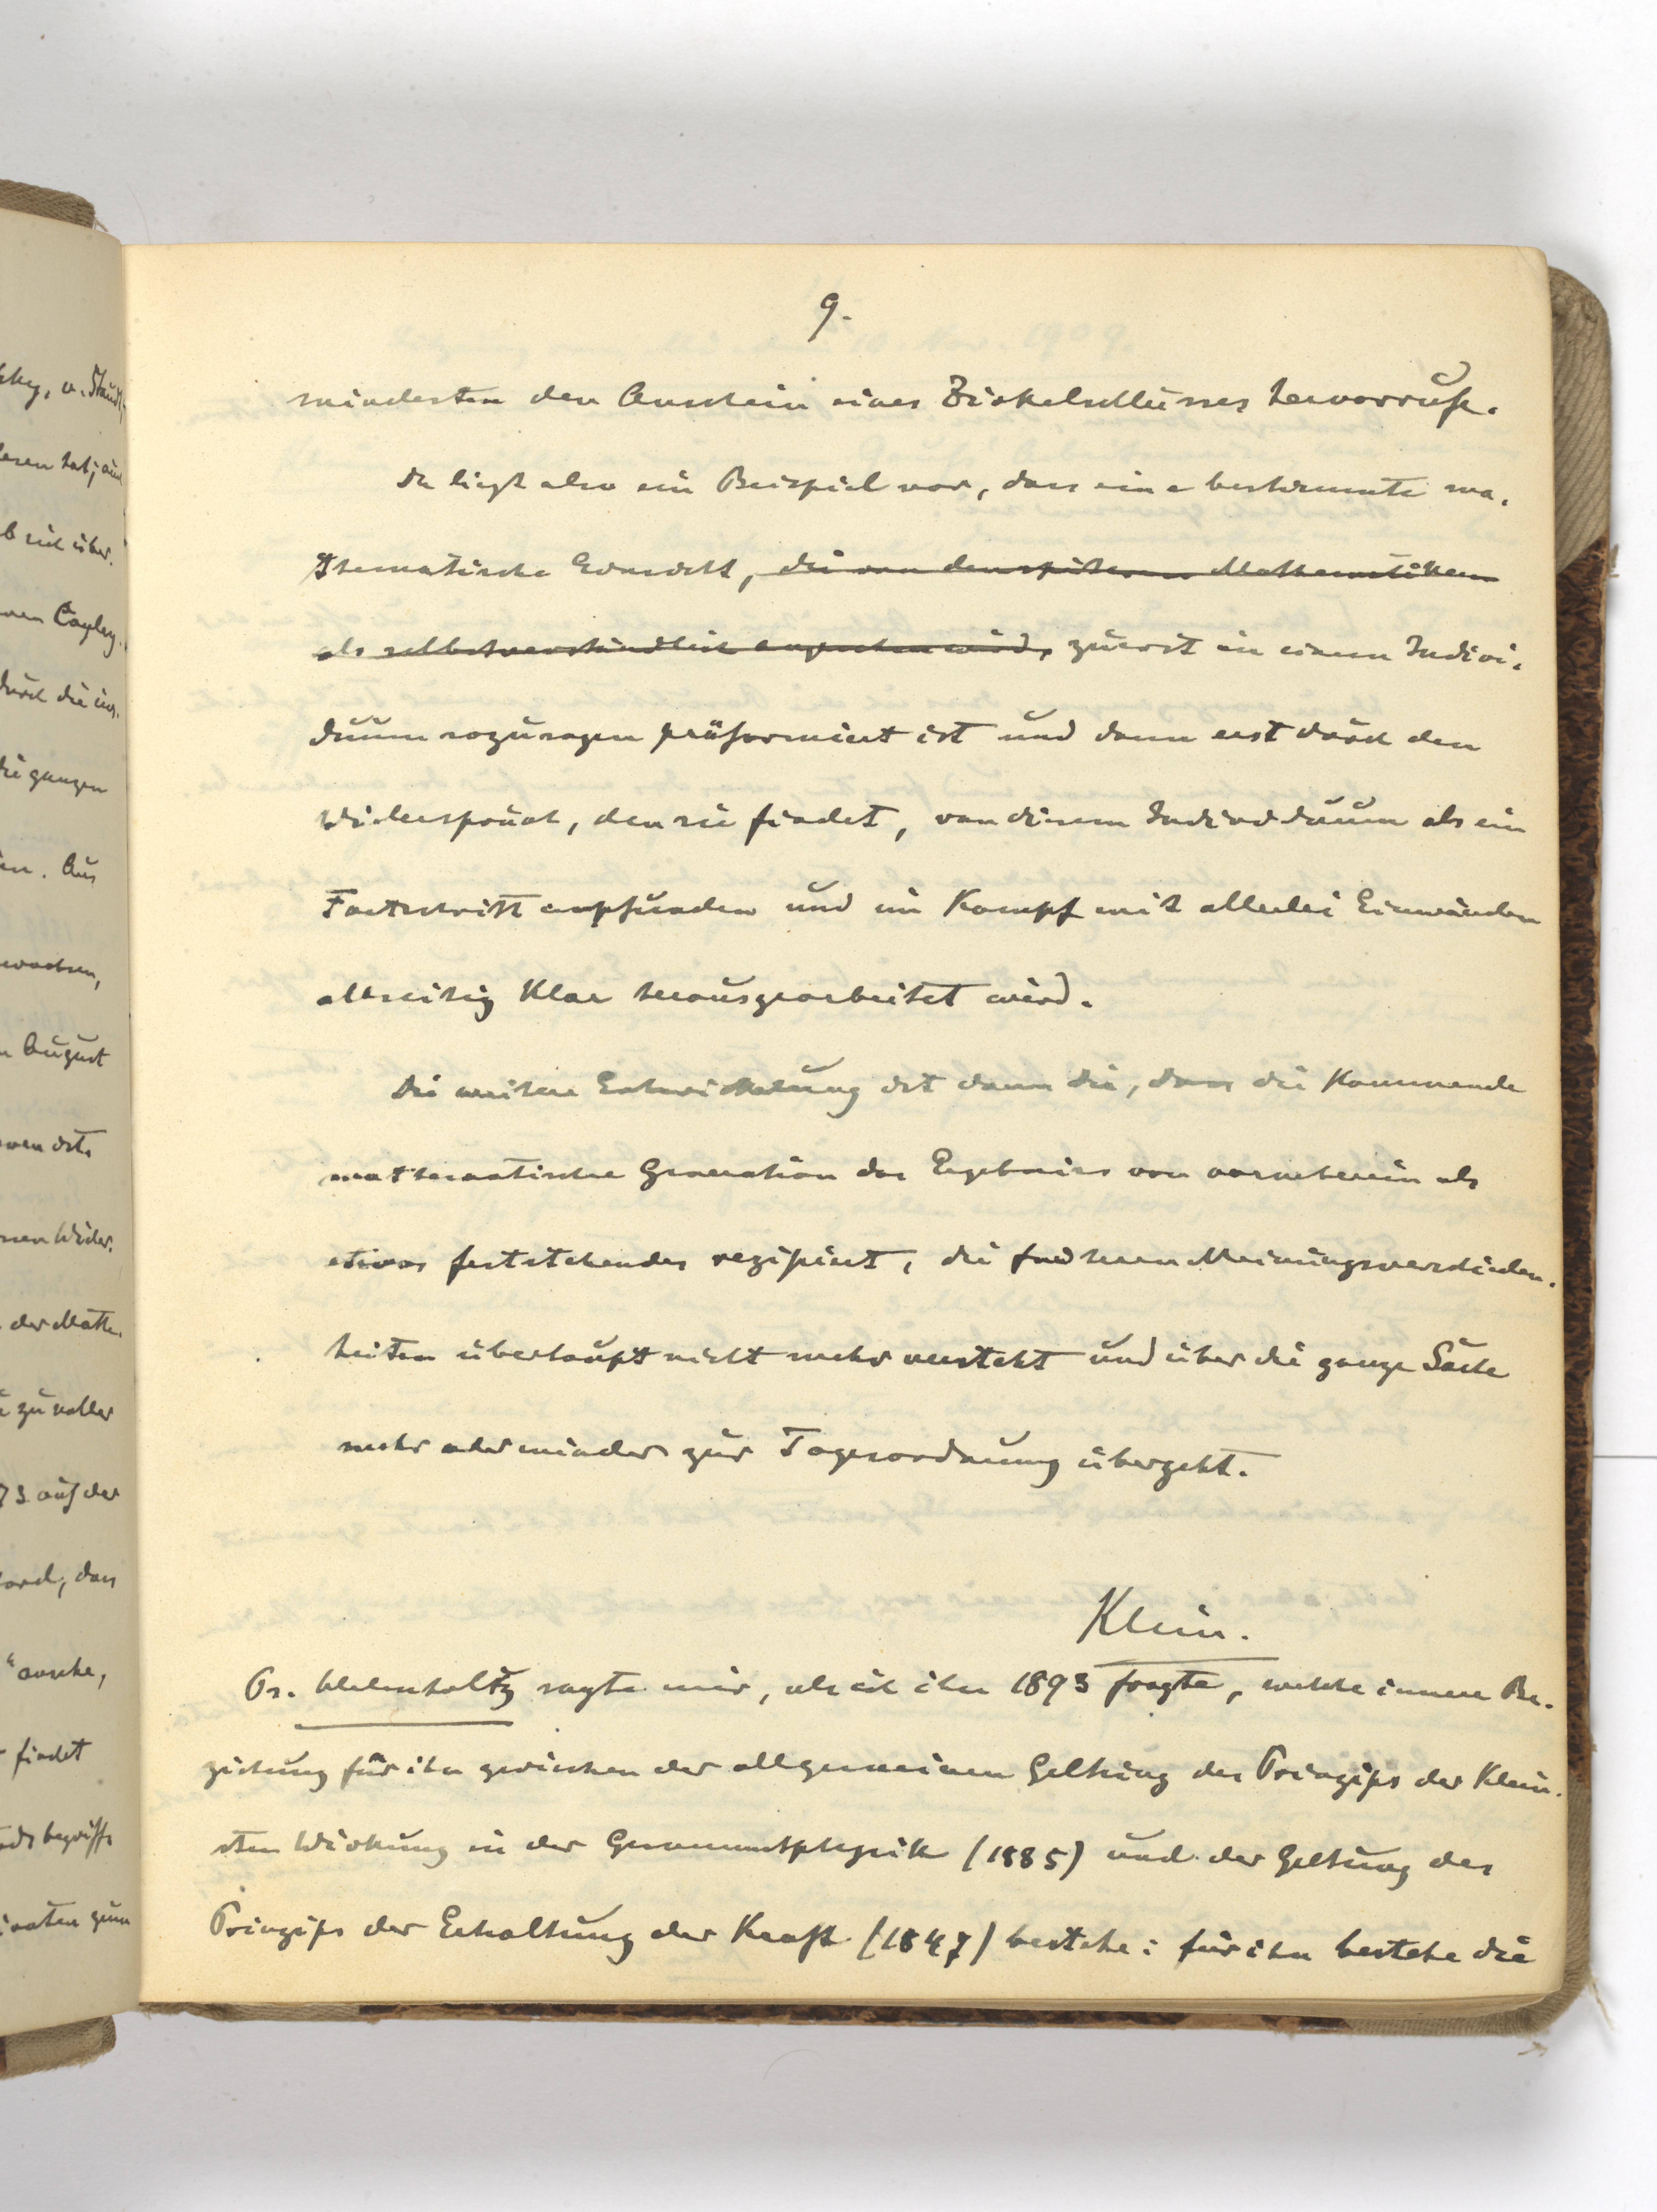 9.
mindesten den Anschein eines Zirkelschlusses hervorruft.
Da liegt also ein Beispiel vor, dass eine bestimmte ma-
thematische Einsicht, die von den späteren Mathematikern
als selbstverständlich angesehen wird, zuerst in einem Indivi-
duum sozusagen präformiert ist und dann erst durch den
Widerspruch, den sie findet, von diesem Individuum als ein
Fortschritt empfunden und im Kampf mit allerlei Einwänden
allseitig klar herausgearbeitet wird.
Die weitere Entwickelung ist dann die, dass die kommende
mathematische Generation das Ergebnis von vorneherein als
etwas feststehendes rezipiert, die früheren Meinungsverschieden-
heiten überhaupt nicht mehr versteht und über die ganze Sache
mehr oder minder zur Tagesordnung übergeht.
Klein.
Ps. Helmholtz sagte mir, als ich ihn 1893 fragte, welche innere Be-
ziehung für ihn zwischen der allgemeinen Geltung des Prinzips der klein-
sten Wirkung in der Gesammtphysik (1885) und der Geltung des
Prinzips der Erhaltung der Kraft (1847) bestehe: für ihn bestehe die
v. Staudt,
lesen hat; auch
sich über-
Cayley
durch die
die ganzen
Aus
wachsen,
August
ist.
Wider-
der Mathe-
zu voller
73 auf der
dass
findet
begriffs
zum